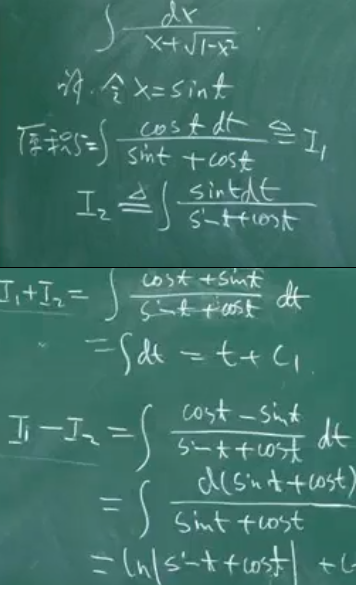 ∫ dx / (x+√(1-x²)) .
解. 令 x=sint
原积分=∫ cost dt / (sint +cost) ≜ I₁
I₂ ≜ ∫ sint dt / (sint+cost)
I₁+I₂ = ∫ (cost +sint) / (sint +cost) dt
=∫dt = t+C₁.
I₁-I₂ =∫ (cost-sint) / (sint+cost) dt
=∫ d(sint+cost) / (sint+cost)
=ln|sint+cost| +C